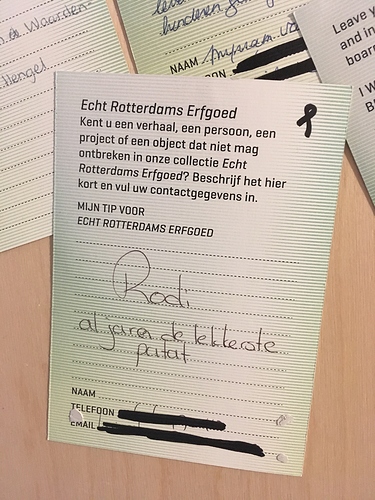 n de Waarden-
Hengel
hinderen
NAAM Myriam
Leave y
and in
boar
I W
B
Echt Rotterdams Erfgoed
Kent u een verhaal, een persoon, een
project of een object dat niet mag
ontbreken in onze collectie Echt
Rotterdams Erfgoed? Beschrijf het hier
kort en vul uw contactgegevens in.
MIJN TIP VOOR
ECHT ROTTERDAMS ERFGOED
Rodi
al jaren de lekkerste
patat
NAAM
TELEFOON
EMAIL